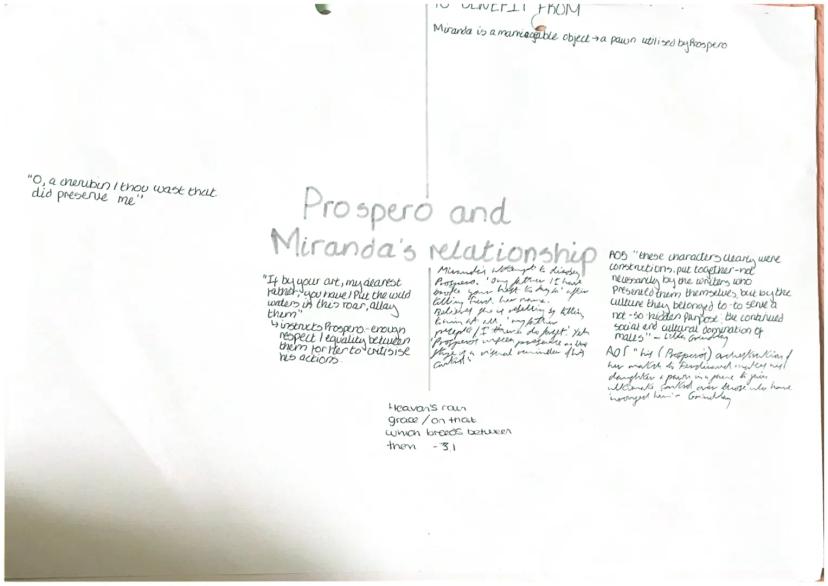 TO BENEFIT FROM
Miranda is a marriageable object → a pawn utilised by Prospero
"O, a cherubin / thou wast that
did preserve me"
Prospero and
Miranda's relationship
"If by your art, my dearest
father, you have / Put the wild
waters in this roar, allay
them"
↳ instructs Prospero - enough
respect / equality between
them for her to criticise
his actions
Miranda's attempt to disobey
Prospero. 'my father / I have
broke your hest to say so' after
telling Ferd. her name.
Believes she is rebelling by telling
him at all, 'my father's
precepts / I therein do forget' Yet
Prospero's unseen presence on the
stage is a visual reminder of his
control.
AO5 "these characters clearly were
constructions, put together - not
necessarily by the writers who
presented them themselves, but by the
culture they belonged to - to serve a
not-so-hidden purpose: the continued
social and cultural domination of
males" -
AO5 "his (Prospero's) orchestration of
her match to Ferdinand makes his
daughter a pawn in a game to gain
ultimate control over those who have
wronged him" -
Heaven's rain
grace / on that
which breeds between
them - 3.1